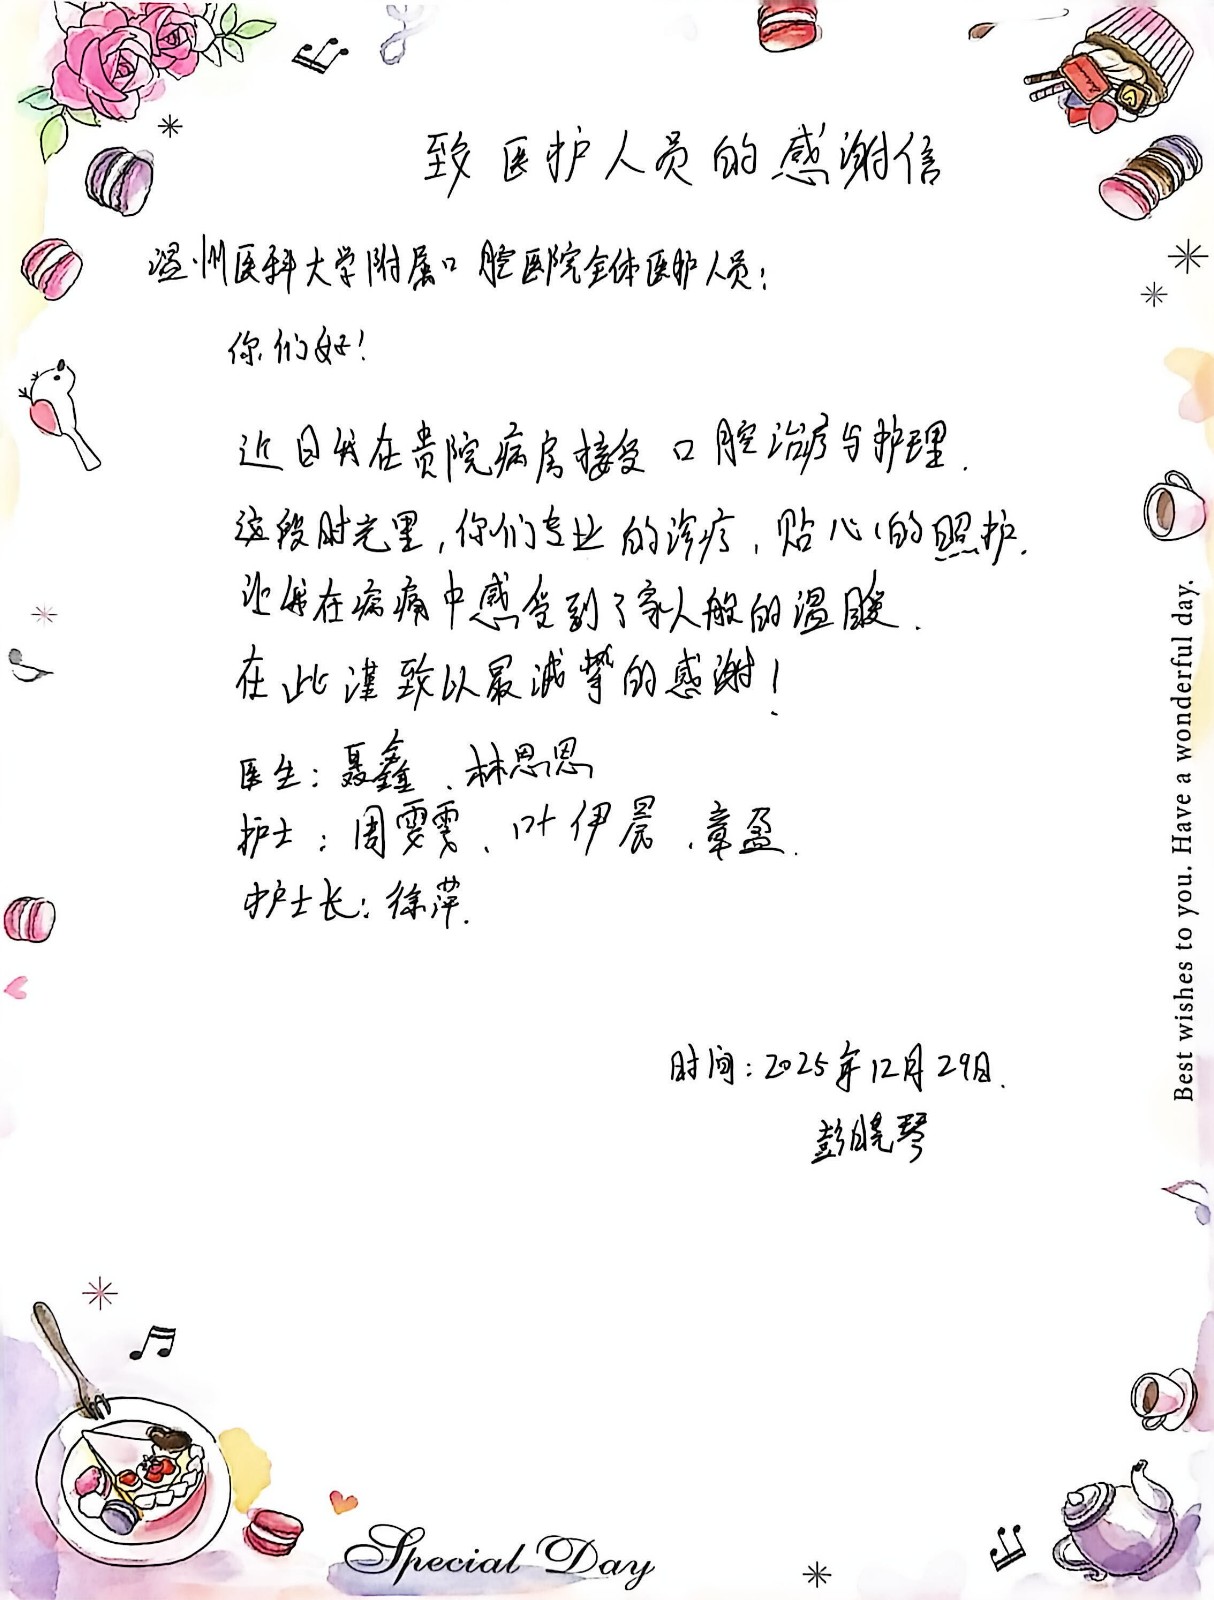 致医护人员的感谢信
温州医科大学附属口腔医院全体医护人员:
你们好!
近日我在贵院病房接受口腔治疗与护理.
这段时光里,你们专业的诊疗,贴心的照护.
让我在病痛中感受到了家人般的温暖.
在此谨致以最诚挚的感谢!
医生:聂鑫、林思恩
护士:周雯雯、叶伊晨、章盈.
护士长:徐萍.
时间:2025年12月29日.
彭晓琴
Best wishes to you. Have a wonderful day.
Special Day